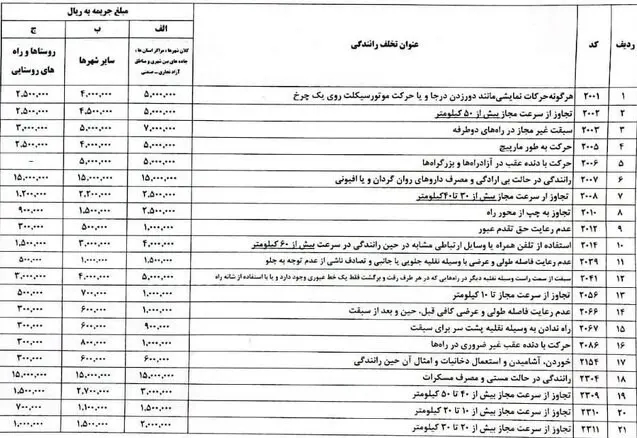 ردیف | کد | عنوان تخلف رانندگی | مبلغ جریمه به ریال
الف | ب | ج
کلان شهرها ، مراکز استان ها ، جاده های بین شهری و مناطق آزاد تجاری _ صنعتی | سایر شهرها | روستاها و راه های روستایی
۱ | ۲۰۰۱ | هرگونه حرکات نمایشی مانند دورزدن درجا و یا حرکت موتورسیکلت روی یک چرخ | ۵,۰۰۰,۰۰۰ | ۴,۰۰۰,۰۰۰ | ۲,۵۰۰,۰۰۰
۲ | ۲۰۰۲ | تجاوز از سرعت مجاز بیش از ۵۰ کیلومتر | ۵,۰۰۰,۰۰۰ | ۴,۵۰۰,۰۰۰ | ۲,۵۰۰,۰۰۰
۳ | ۲۰۰۳ | سبقت غیر مجاز در راه‌های دوطرفه | ۷,۰۰۰,۰۰۰ | ۵,۰۰۰,۰۰۰ | ۳,۰۰۰,۰۰۰
۴ | ۲۰۰۵ | حرکت به طور مارپیچ | ۵,۰۰۰,۰۰۰ | ۴,۰۰۰,۰۰۰ | ۲,۵۰۰,۰۰۰
۵ | ۲۰۰۶ | حرکت با دنده عقب در آزادراه‌ها و بزرگراه‌ها | ۵,۰۰۰,۰۰۰ | ۵,۰۰۰,۰۰۰ | -
۶ | ۲۰۰۷ | رانندگی در حالت بی ارادگی و مصرف داروهای روان گردان و یا افیونی | ۱۵,۰۰۰,۰۰۰ | ۱۵,۰۰۰,۰۰۰ | ۱۵,۰۰۰,۰۰۰
۷ | ۲۰۰۸ | تجاوز از سرعت مجاز بیش از ۳۰ تا ۴۰ کیلومتر | ۲,۵۰۰,۰۰۰ | ۲,۲۰۰,۰۰۰ | ۱,۲۰۰,۰۰۰
۸ | ۲۰۱۰ | تجاوز به چپ از محور راه | ۲,۵۰۰,۰۰۰ | ۱,۵۰۰,۰۰۰ | ۹۰۰,۰۰۰
۹ | ۲۰۱۲ | عدم رعایت حق تقدم عبور | ۱,۰۰۰,۰۰۰ | ۵۰۰,۰۰۰ | ۳۰۰,۰۰۰
۱۰ | ۲۰۱۴ | استفاده از تلفن همراه یا وسایل ارتباطی مشابه در حین رانندگی در سرعت بیش از ۶۰ کیلومتر | ۴,۰۰۰,۰۰۰ | ۳,۰۰۰,۰۰۰ | ۱,۵۰۰,۰۰۰
۱۱ | ۲۰۳۹ | عدم رعایت فاصله طولی و عرضی با وسیله نقلیه جلویی یا جانبی و تصادف ناشی از عدم توجه به جلو | ۱,۵۰۰,۰۰۰ | ۱,۰۰۰,۰۰۰ | ۵۰۰,۰۰۰
۱۲ | ۲۰۴۱ | سبقت از سمت راست وسیله نقلیه دیگر در راه‌هایی که در هر طرف رفت و برگشت فقط یک خط عبوری وجود دارد و یا با استفاده از شانه راه | ۵,۰۰۰,۰۰۰ | ۴,۰۰۰,۰۰۰ | ۳,۰۰۰,۰۰۰
۱۳ | ۲۰۵۶ | تجاوز از سرعت مجاز تا ۱۰ کیلومتر | ۱,۰۰۰,۰۰۰ | ۷۰۰,۰۰۰ | ۵۰۰,۰۰۰
۱۴ | ۲۰۶۶ | عدم رعایت فاصله طولی و عرضی کافی قبل، حین و بعد از سبقت | ۱,۰۰۰,۰۰۰ | ۶۰۰,۰۰۰ | ۳۰۰,۰۰۰
۱۵ | ۲۰۶۷ | راه ندادن به وسیله نقلیه پشت سر برای سبقت | ۹۰۰,۰۰۰ | ۶۰۰,۰۰۰ | ۳۰۰,۰۰۰
۱۶ | ۲۰۸۶ | حرکت با دنده عقب غیر ضروری در راه‌ها | ۱,۰۰۰,۰۰۰ | ۸۰۰,۰۰۰ | ۳۰۰,۰۰۰
۱۷ | ۲۱۵۴ | خوردن، آشامیدن و استعمال دخانیات و امثال آن حین رانندگی | ۶۰۰,۰۰۰ | ۶۰۰,۰۰۰ | ۳۰۰,۰۰۰
۱۸ | ۲۳۰۴ | رانندگی در حالت مستی و مصرف مسکرات | ۱۵,۰۰۰,۰۰۰ | ۱۵,۰۰۰,۰۰۰ | ۱۵,۰۰۰,۰۰۰
۱۹ | ۲۳۰۹ | تجاوز از سرعت مجاز بیش از ۴۰ تا ۵۰ کیلومتر | ۳,۰۰۰,۰۰۰ | ۲,۷۰۰,۰۰۰ | ۱,۵۰۰,۰۰۰
۲۰ | ۲۳۱۰ | تجاوز از سرعت مجاز بیش از ۱۰ تا ۲۰ کیلومتر | ۱,۵۰۰,۰۰۰ | ۱,۱۰۰,۰۰۰ | ۷۰۰,۰۰۰
۲۱ | ۲۳۱۱ | تجاوز از سرعت مجاز بیش از ۲۰ تا ۳۰ کیلومتر | ۲,۰۰۰,۰۰۰ | ۱,۵۰۰,۰۰۰ | ۱,۰۰۰,۰۰۰